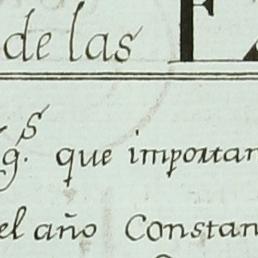 de las F
g.s que importan
el año Constan